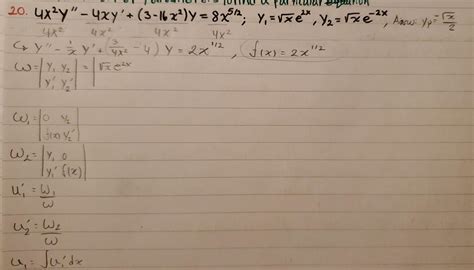 particular equation
20. 4x²y'' - 4xy' + (3-16x²)y = 8x^{5/2}; y₁=√x e^{2x}, y₂=√x e^{-2x}, Answ: yp = √x/2
4x² 4x² 4x² 4x²
↪ y'' - 1/x y' + (3/4x² - 4) y = 2x^{1/2}, f(x) = 2x^{1/2}
ω = |y₁ y₂; y₁' y₂'| = |√x e^{2x}
ω₁ = |0 y₂; f(x) y₂'|
ω₂ = |y₁ 0; y₁' f(x)|
u₁' = ω₁/ω
u₂' = ω₂/ω
u₁ = ∫u₁'dx